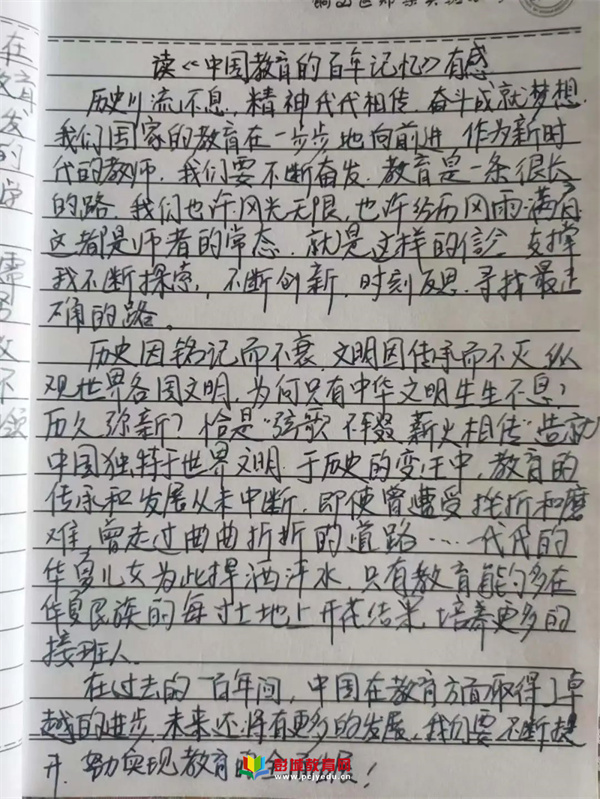 读《中国教育的百年记忆》有感
历史川流不息，精神代代相传，奋斗成就梦想.
我们国家的教育在一步步地向前进，作为新时
代的教师，我们要不断奋发，教育是一条很长
的路，我们也许风光无限，也许经历风雨满肩
这都是师者的常态，就是这样的信念，支撑
我不断探索，不断创新，时刻反思，寻找最正
确的路。
历史因铭记而不衰，文明因传承而不灭，纵
观世界各国文明，为何只有中华文明生生不息？
历久弥新？恰是“弦歌不辍 薪火相传”造就
中国独特于世界文明.于历史的变迁中，教育的
传承和发展从未中断，即使曾遭受挫折和磨
难，曾走过曲曲折折的道路……一代代的
华夏儿女为此挥洒汗水，只有教育能够多在
华夏民族的每寸土地上开花结果，培养更多的
接班人.
在过去的一百年间，中国在教育方面取得了卓
越的进步，未来还将有更多的发展，我们要不断提
升，努力实现教育的发展！
彭博教育网
www.pcjyedu.cn
在
教育
的
学
儒
教
不
领